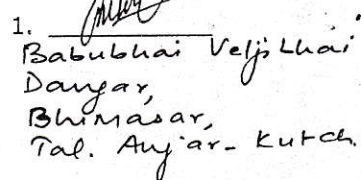 1.
Babubhai Veljibhai
Dangar,
Bhimasar,
Tal. Anjar- Kutch.